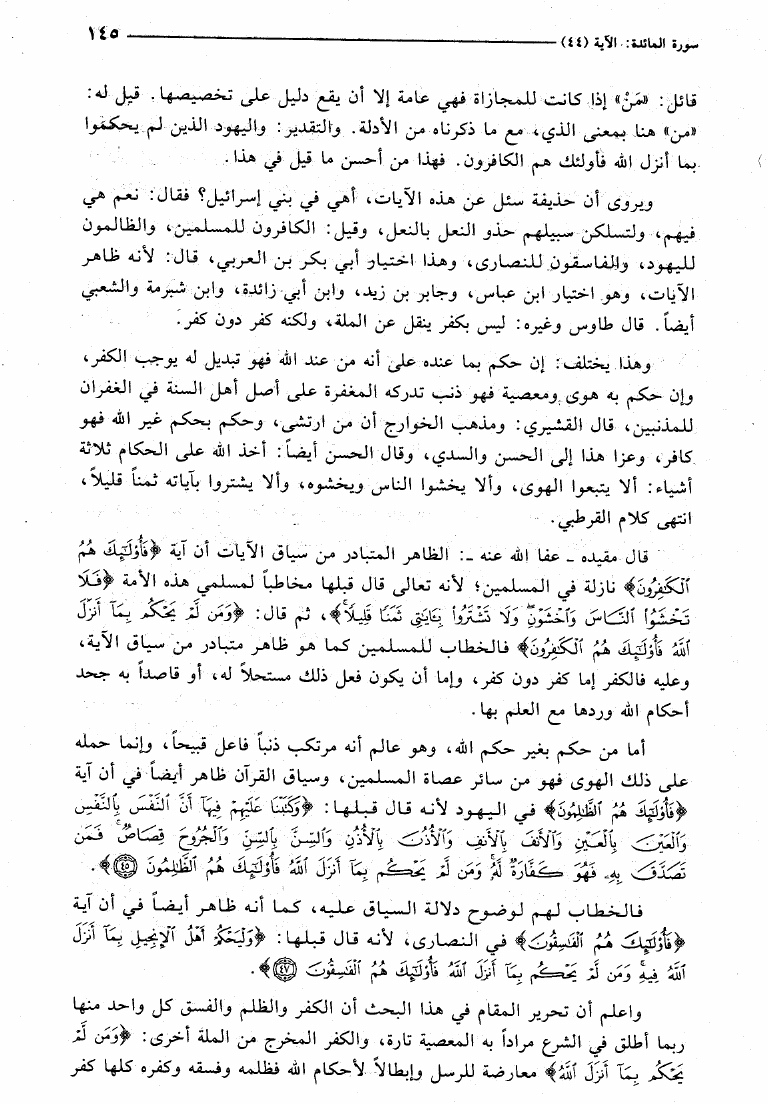 سورة المائدة: الآية (٤٤) ١٤٥
قائل: «مَنْ» إذا كانت للمجازاة فهي عامة إلا أن يقع دليل على تخصيصها. قيل له:
«من» هنا بمعنى الذي، مع ما ذكرناه من الأدلة. والتقدير: واليهود الذين لم يحكموا
بما أنزل الله فأولئك هم الكافرون. فهذا من أحسن ما قيل في هذا.
ويروى أن حذيفة سئل عن هذه الآيات، أهي في بني إسرائيل؟ فقال: نعم هي
فيهم، ولتسلكن سبيلهم حذو النعل بالنعل، وقيل: الكافرون للمسلمين، والظالمون
لليهود، والفاسقون للنصارى، وهذا اختيار أبي بكر بن العربي، قال: لأنه ظاهر
الآيات، وهو اختيار ابن عباس، وجابر بن زيد، وابن أبي زائدة، وابن شبرمة والشعبي
أيضاً. قال طاوس وغيره: ليس بكفر ينقل عن الملة، ولكنه كفر دون كفر.
وهذا يختلف: إن حكم بما عنده على أنه من عند الله فهو تبديل له يوجب الكفر،
وإن حكم به هوى ومعصية فهو ذنب تدركه المغفرة على أصل أهل السنة في الغفران
للمذنبين، قال القشيري: ومذهب الخوارج أن من ارتشى، وحكم بحكم غير الله فهو
كافر، وعزا هذا إلى الحسن والسدي، وقال الحسن أيضاً: أخذ الله على الحكام ثلاثة
أشياء: ألا يتبعوا الهوى، وألا يخشوا الناس ويخشوه، وألا يشتروا بآياته ثمناً قليلاً،
انتهى كلام القرطبي.
قال مقيده ـ عفا الله عنه ـ: الظاهر المتبادر من سياق الآيات أن آية ﴿فَأُوْلَٰٓئِكَ هُمُ
ٱلْكَٰفِرُونَ﴾ نازلة في المسلمين؛ لأنه تعالى قال قبلها مخاطباً لمسلمي هذه الأمة ﴿فَلَا
تَخْشَوُا۟ ٱلنَّاسَ وَٱخْشَوْنِ وَلَا تَشْتَرُوا۟ بِـَٔايَٰتِى ثَمَنًا قَلِيلًا﴾، ثم قال: ﴿وَمَن لَّمْ يَحْكُم بِمَآ أَنزَلَ
ٱللَّهُ فَأُو۟لَٰٓئِكَ هُمُ ٱلْكَٰفِرُونَ﴾ فالخطاب للمسلمين كما هو ظاهر متبادر من سياق الآية،
وعليه فالكفر إما كفر دون كفر، وإما أن يكون فعل ذلك مستحلاً له، أو قاصداً به جحد
أحكام الله وردها مع العلم بها.
أما من حكم بغير حكم الله، وهو عالم أنه مرتكب ذنباً فاعل قبيحاً، وإنما حمله
على ذلك الهوى فهو من سائر عصاة المسلمين، وسياق القرآن ظاهر أيضاً في أن آية
﴿فَأُو۟لَٰٓئِكَ هُمُ ٱلظَّٰلِمُونَ﴾ في اليهود لأنه قال قبلها: ﴿وَكَتَبْنَا عَلَيْهِمْ فِيهَآ أَنَّ ٱلنَّفْسَ بِٱلنَّفْسِ
وَٱلْعَيْنَ بِٱلْعَيْنِ وَٱلْأَنفَ بِٱلْأَنفِ وَٱلْأُذُنَ بِٱلْأُذُنِ وَٱلسِّنَّ بِٱلسِّنِّ وَٱلْجُرُوحَ قِصَاصٌ فَمَن
تَصَدَّقَ بِهِۦ فَهُوَ كَفَّارَةٌ لَّهُۥ وَمَن لَّمْ يَحْكُم بِمَآ أَنزَلَ ٱللَّهُ فَأُو۟لَٰٓئِكَ هُمُ ٱلظَّٰلِمُونَ ٤٥﴾.
فالخطاب لهم لوضوح دلالة السياق عليه، كما أنه ظاهر أيضاً في أن آية
﴿فَأُو۟لَٰٓئِكَ هُمُ ٱلْفَٰسِقُونَ﴾ في النصارى، لأنه قال قبلها: ﴿وَلْيَحْكُمْ أَهْلُ ٱلْإِنجِيلِ بِمَآ أَنزَلَ
ٱللَّهُ فِيهِ وَمَن لَّمْ يَحْكُم بِمَآ أَنزَلَ ٱللَّهُ فَأُو۟لَٰٓئِكَ هُمُ ٱلْفَٰسِقُونَ ٤٧﴾.
واعلم أن تحرير المقام في هذا البحث أن الكفر والظلم والفسق كل واحد منها
ربما أطلق في الشرع مراداً به المعصية تارة، والكفر المخرج من الملة أخرى: ﴿وَمَن لَّمْ
يَحْكُم بِمَآ أَنزَلَ ٱللَّهُ﴾ معارضة للرسل وإبطالاً لأحكام الله فظلمه وفسقه وكفره كلها كفر